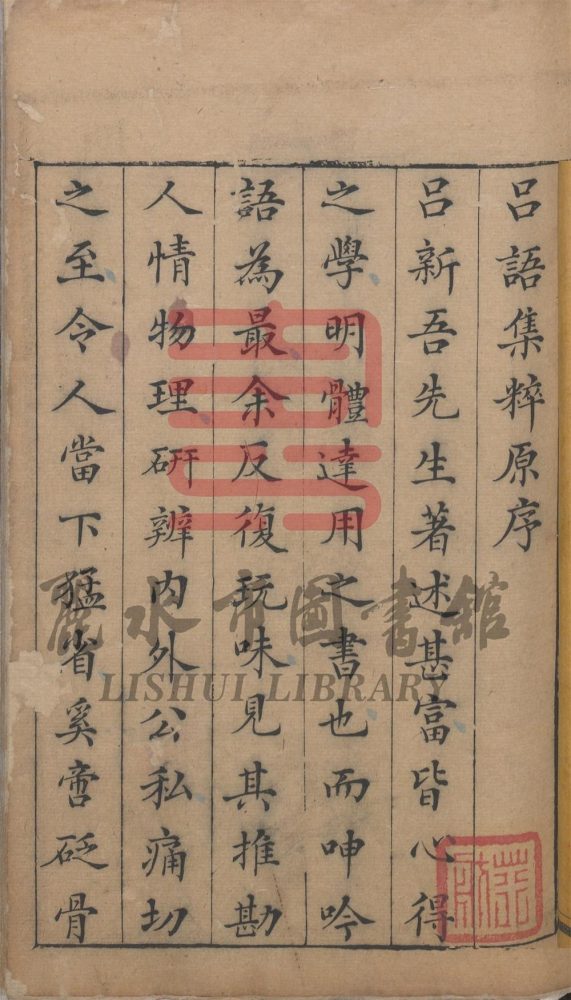 呂語集粹原序
呂新吾先生著述甚富皆心得
之學明體達用之書也而呻吟
語為最余反復玩味見其推勘
人情物理研辨內外公私痛切
之至令人當下猛省奚啻砭骨
麗水市圖書館
LISHUI LIBRARY